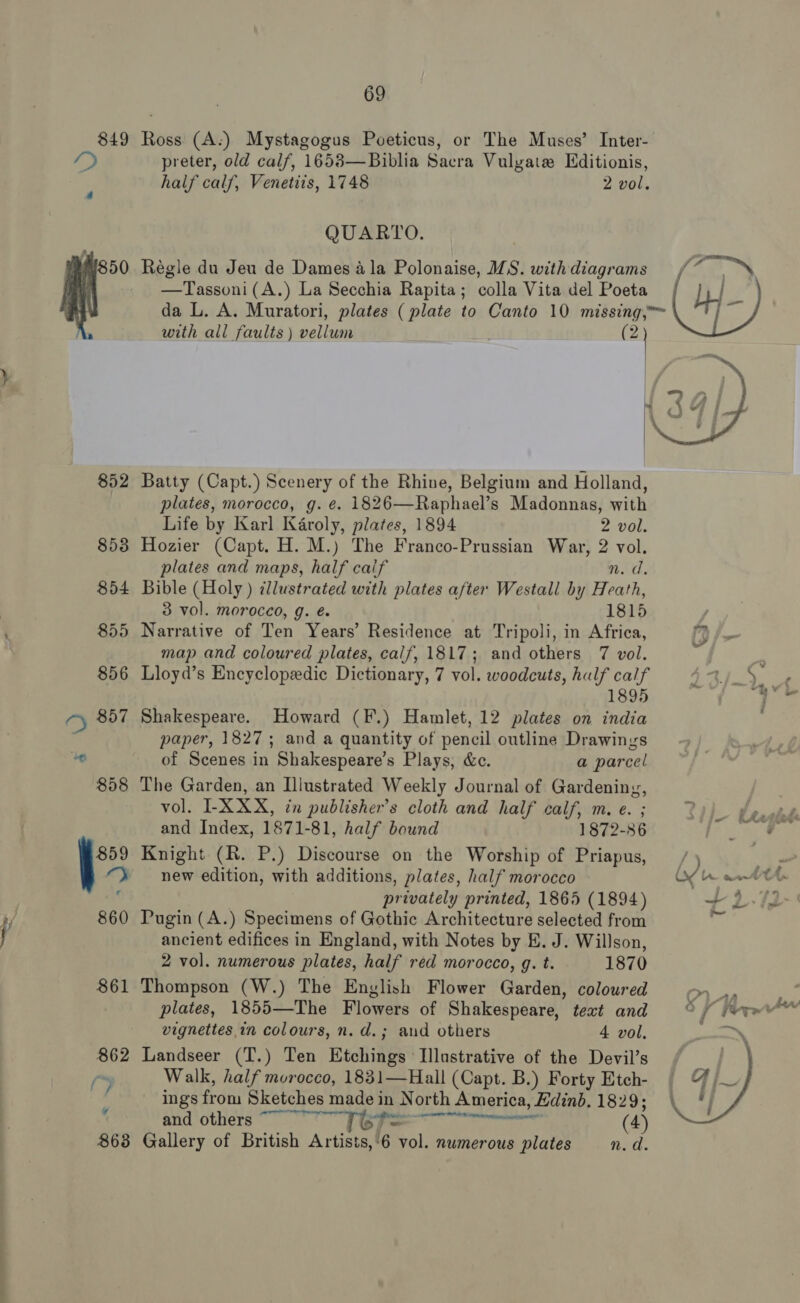 69
849 Ross (A.) Mystagogus Poeticus, or The Muses’ Inter-
preter, old calf, 1653—Biblia Sacra Vulgatæ Editionis,
half calf, Venetiis, 1748 2 vol.
QUARTO.
850 Règle du Jeu de Dames à la Polonaise, MS. with diagrams
—Tassoni (A.) La Secchia Rapita; colla Vita del Poeta
da L. A. Muratori, plates (plate to Canto 10 missing,
with all faults) vellum (2)
4/-
39/
852 Batty (Capt.) Scenery of the Rhine, Belgium and Holland,
plates, morocco, g. e. 1826—Raphael’s Madonnas, with
Life by Karl Károly, plates, 1894 2 vol.
853 Hozier (Capt. H. M.) The Franco-Prussian War, 2 vol.
plates and maps, half calf n. d.
854 Bible (Holy) illustrated with plates after Westall by Heath,
3 vol. morocco, g. e. 1815
855 Narrative of Ten Years’ Residence at Tripoli, in Africa,
map and coloured plates, calf, 1817; and others 7 vol.
856 Lloyd’s Encyclopædic Dictionary, 7 vol. woodcuts, half calf
1895
857 Shakespeare. Howard (F.) Hamlet, 12 plates on india
paper, 1827; and a quantity of pencil outline Drawings
of Scenes in Shakespeare’s Plays, &c. a parcel
858 The Garden, an Illustrated Weekly Journal of Gardening,
vol. I-XXX, in publisher’s cloth and half calf, m. e.;
and Index, 1871-81, half bound 1872-86
859 Knight (R. P.) Discourse on the Worship of Priapus,
new edition, with additions, plates, half morocco
privately printed, 1865 (1894)
860 Pugin (A.) Specimens of Gothic Architecture selected from
ancient edifices in England, with Notes by E. J. Willson,
2 vol. numerous plates, half red morocco, g. t. 1870
861 Thompson (W.) The English Flower Garden, coloured
plates, 1855—The Flowers of Shakespeare, text and
vignettes in colours, n. d.; and others 4 vol.
862 Landseer (T.) Ten Etchings Illustrative of the Devil’s
Walk, half morocco, 1831—Hall (Capt. B.) Forty Etch-
ings from Sketches made in North America, Edinb. 1829;
and others (4)
9/-
863 Gallery of British Artists, 6 vol. numerous plates n. d.